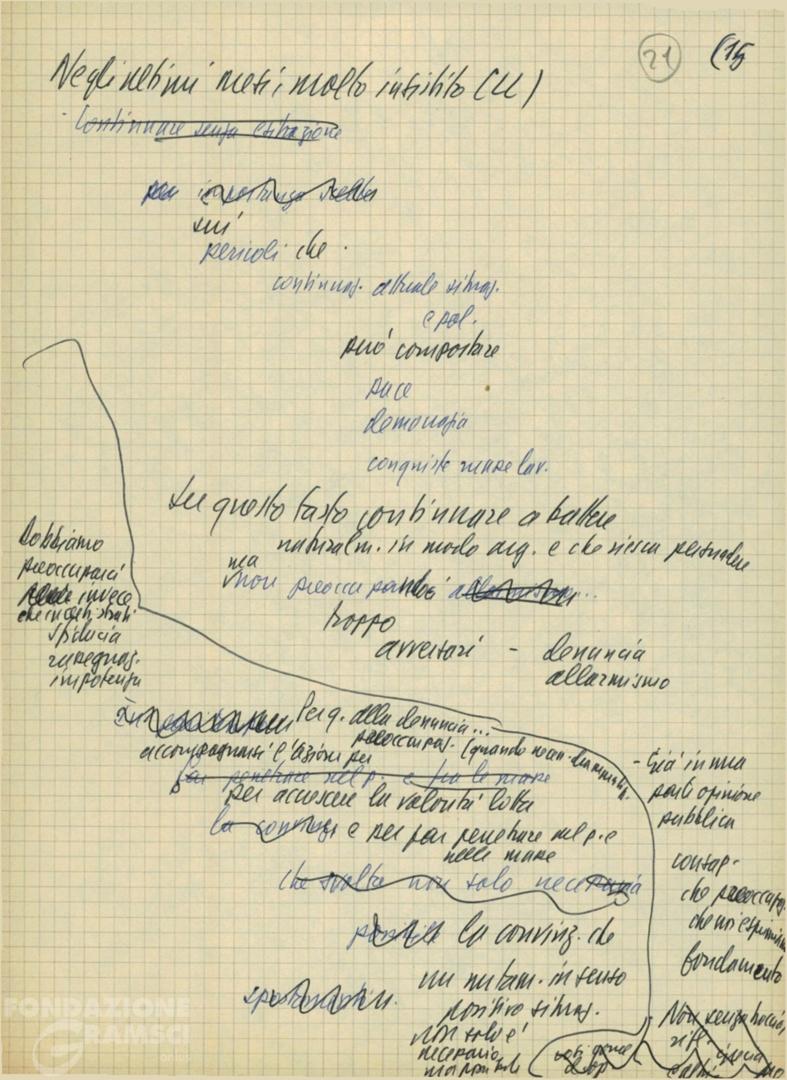 21 (15
Negli ultimi mesi, molto insistito (CC)
- Continuare senza esitazione
per importanza scelta
sui
pericoli che
continuaz. attuale situaz.
e pol.
può comportare
pace
democrazia
conquiste masse lav.
Su questo tasto continuare a battere
naturalm. in modo arg. e che riesca persuadere
ma
non preoccupandoci allarmismo...
troppo
avversari - denuncia
allarmismo
Dobbiamo
preoccuparci
invece
che in certi strati
sfiducia
rassegnaz.
impotenza
Per q. alla denuncia...
preoccupaz. (quando necess.
accompagnarsi l'azione per
far penetrare nel p. e fra le masse
per accrescere la volontà lotta
la convinz. e per far penetrare nel p. e
nelle masse
che svolta non solo necessaria
possibile la convinz. che
un mutam. in senso
positivo situaz.
non solo è
necessario
ma possibile
- Già in una
parte opinione
pubblica
consap.
che preoccupaz.
che noi esprimiamo
fondamento
Non senza
FONDAZIONE
GRAMSCI